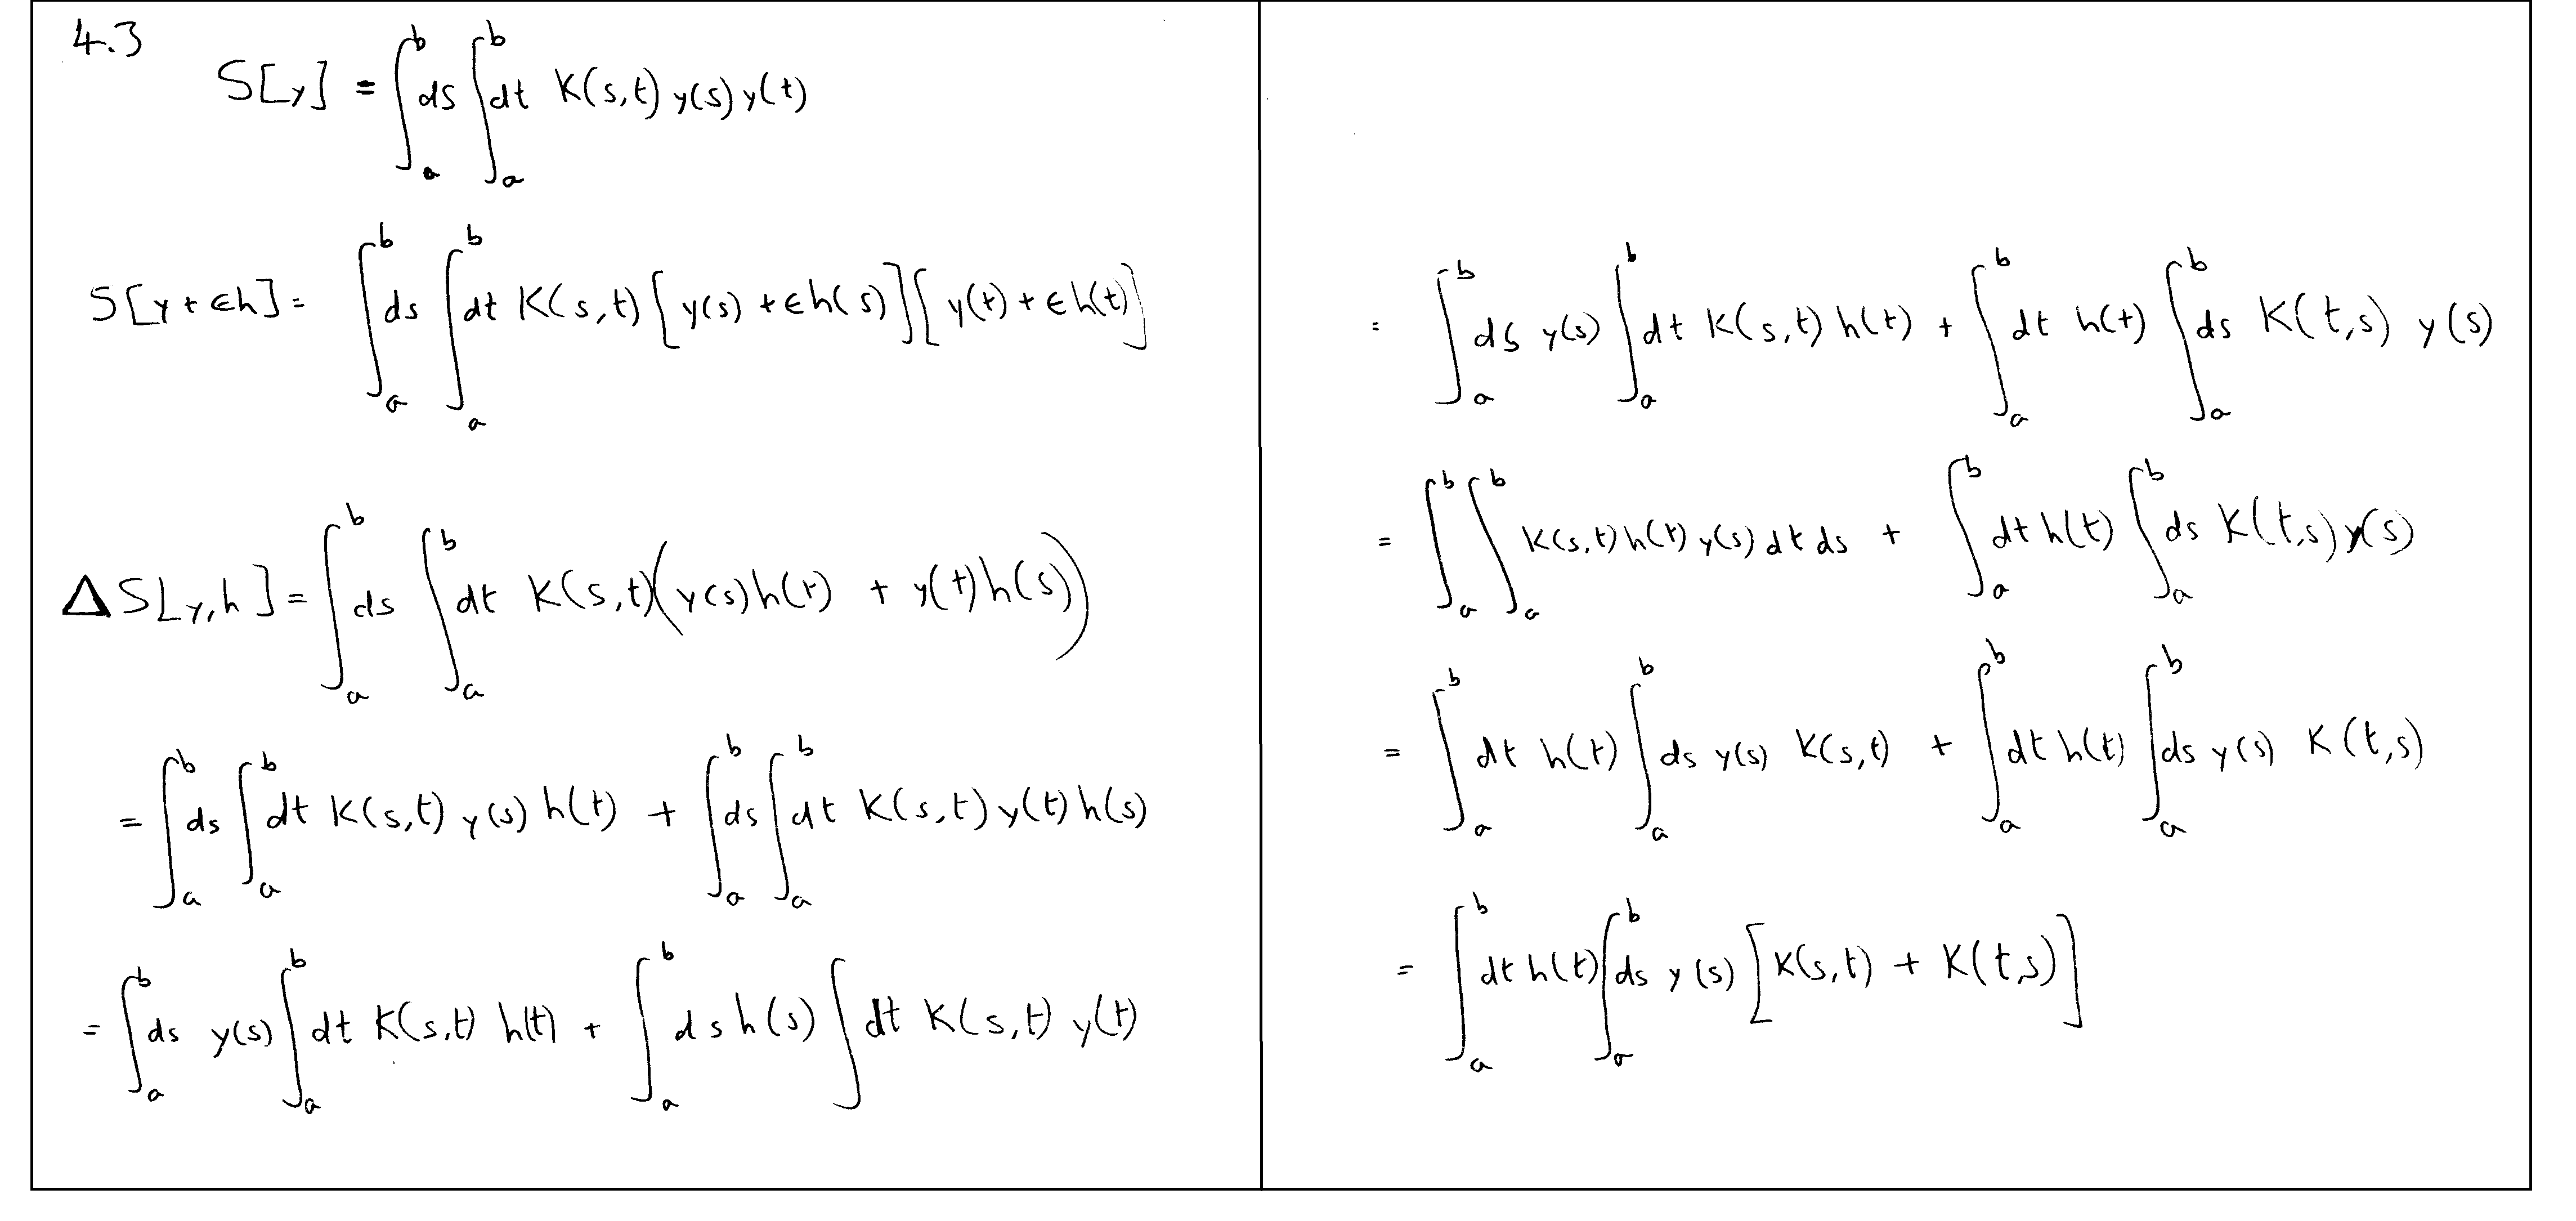 4.3
S[y] = ∫_a^b ds ∫_a^b dt K(s,t) y(s) y(t)
S[y + ϵh] = ∫_a^b ds ∫_a^b dt K(s,t) [y(s) + ϵh(s)][y(t) + ϵh(t)]
ΔS[y,h] = ∫_a^b ds ∫_a^b dt K(s,t)(y(s)h(t) + y(t)h(s))
= ∫_a^b ds ∫_a^b dt K(s,t) y(s) h(t) + ∫_a^b ds ∫_a^b dt K(s,t) y(t) h(s)
= ∫_a^b ds y(s) ∫_a^b dt K(s,t) h(t) + ∫_a^b ds h(s) ∫ dt K(s,t) y(t)
= ∫_a^b ds y(s) ∫_a^b dt K(s,t) h(t) + ∫_a^b dt h(t) ∫_a^b ds K(t,s) y(s)
= ∫_a^b ∫_a^b K(s,t) h(t) y(s) dt ds + ∫_a^b dt h(t) ∫_a^b ds K(t,s) y(s)
= ∫_a^b dt h(t) ∫_a^b ds y(s) K(s,t) + ∫_a^b dt h(t) ∫_a^b ds y(s) K(t,s)
= ∫_a^b dt h(t) ∫_a^b ds y(s) [K(s,t) + K(t,s)]